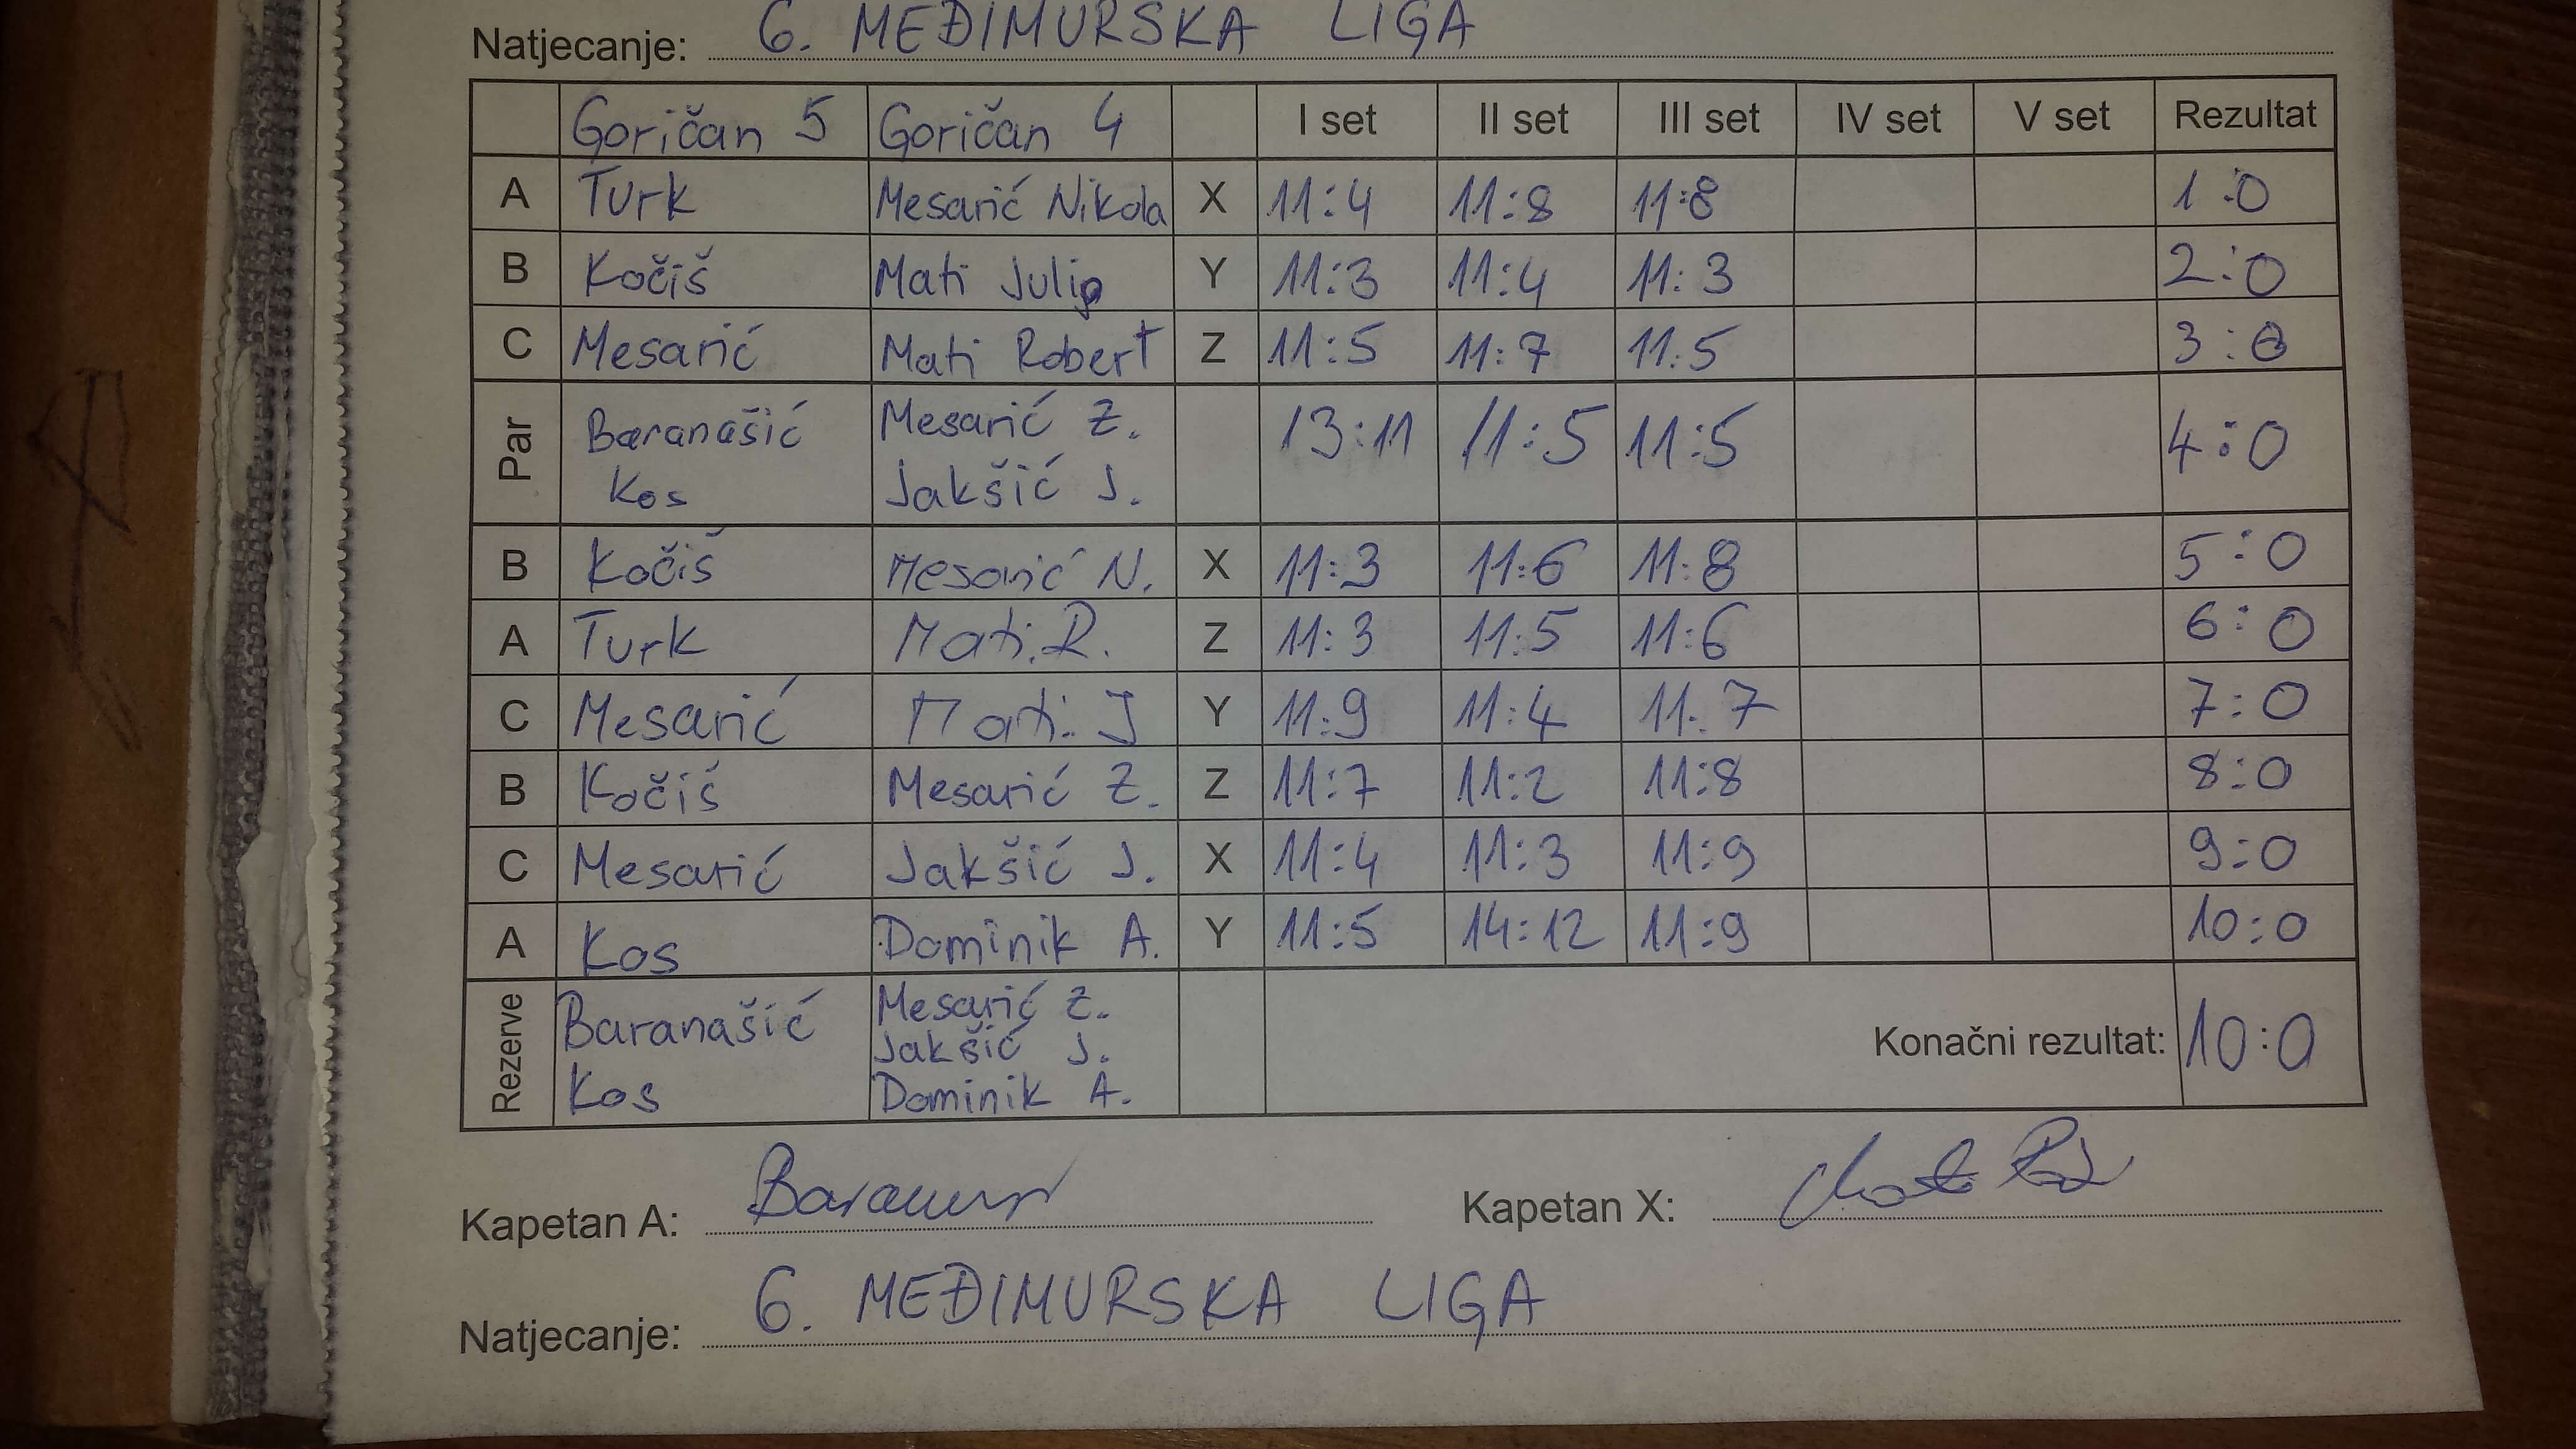 Natjecanje: 6. MEĐIMURSKA LIGA
Goričan 5 Goričan 4 I set II set III set IV set V set Rezultat
A Turk Mesarić Nikola X 11:4 11:8 11:8 1:0
B Kočiš Mati Julip Y 11:3 11:4 11:3 2:0
C Mesarić Mati Robert Z 11:5 11:7 11:5 3:0
Par Baranašić Mesarić Z. 13:11 11:5 11:5 4:0
Kos Jakšić J.
B Kočiš Mesarić N. X 11:3 11:6 11:8 5:0
A Turk Mati.R. Z 11:3 11:5 11:6 6:0
C Mesarić Mati. J Y 11:9 11:4 11.7 7:0
B Kočiš Mesarić Z. Z 11:7 11:2 11:8 8:0
C Mesarić Jakšić J. X 11:4 11:3 11:9 9:0
A Kos Dominik A. Y 11:5 14:12 11:9 10:0
Rezerve Baranašić Mesarić Z.
Jakšić J.
Kos Dominik A.
Konačni rezultat: 10:0
Kapetan A: Kapetan X:
Natjecanje: 6. MEĐIMURSKA LIGA